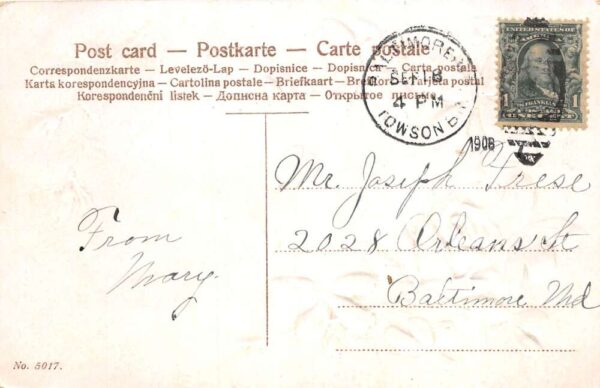 Post card — Postkarte — Carte postale
Correspondenzkarte — Levelező-Lap — Dopisnice — Dopisnica — Carta postala
Karta korespondencyjna — Cartolina postale — Briefkaart — Brefkort — Tarjeta postal
Korespondenční lístek — Дописна карта — Открытое письмо
BALTIMORE MD.
SEP 18
4 PM
TOWSON
1906
UNITED STATES OF AMERICA
FRANKLIN
1 1
Mr. Joseph Frese
2028 Orleans St
Baltimore Md
From
Mary.
No. 5017.